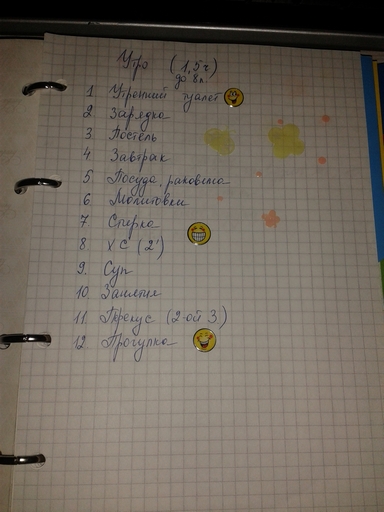 Утро (1,5ч)
до 8ч.
1 Утренний туалет
2 Зарядка
3 Постель
4 Завтрак
5 Посуда, раковина
6 Молитовки
7 Стирка
8 ХС (2')
9. Суп
10. Занятия
11. Перекус (2-ой З)
12 Прогулка